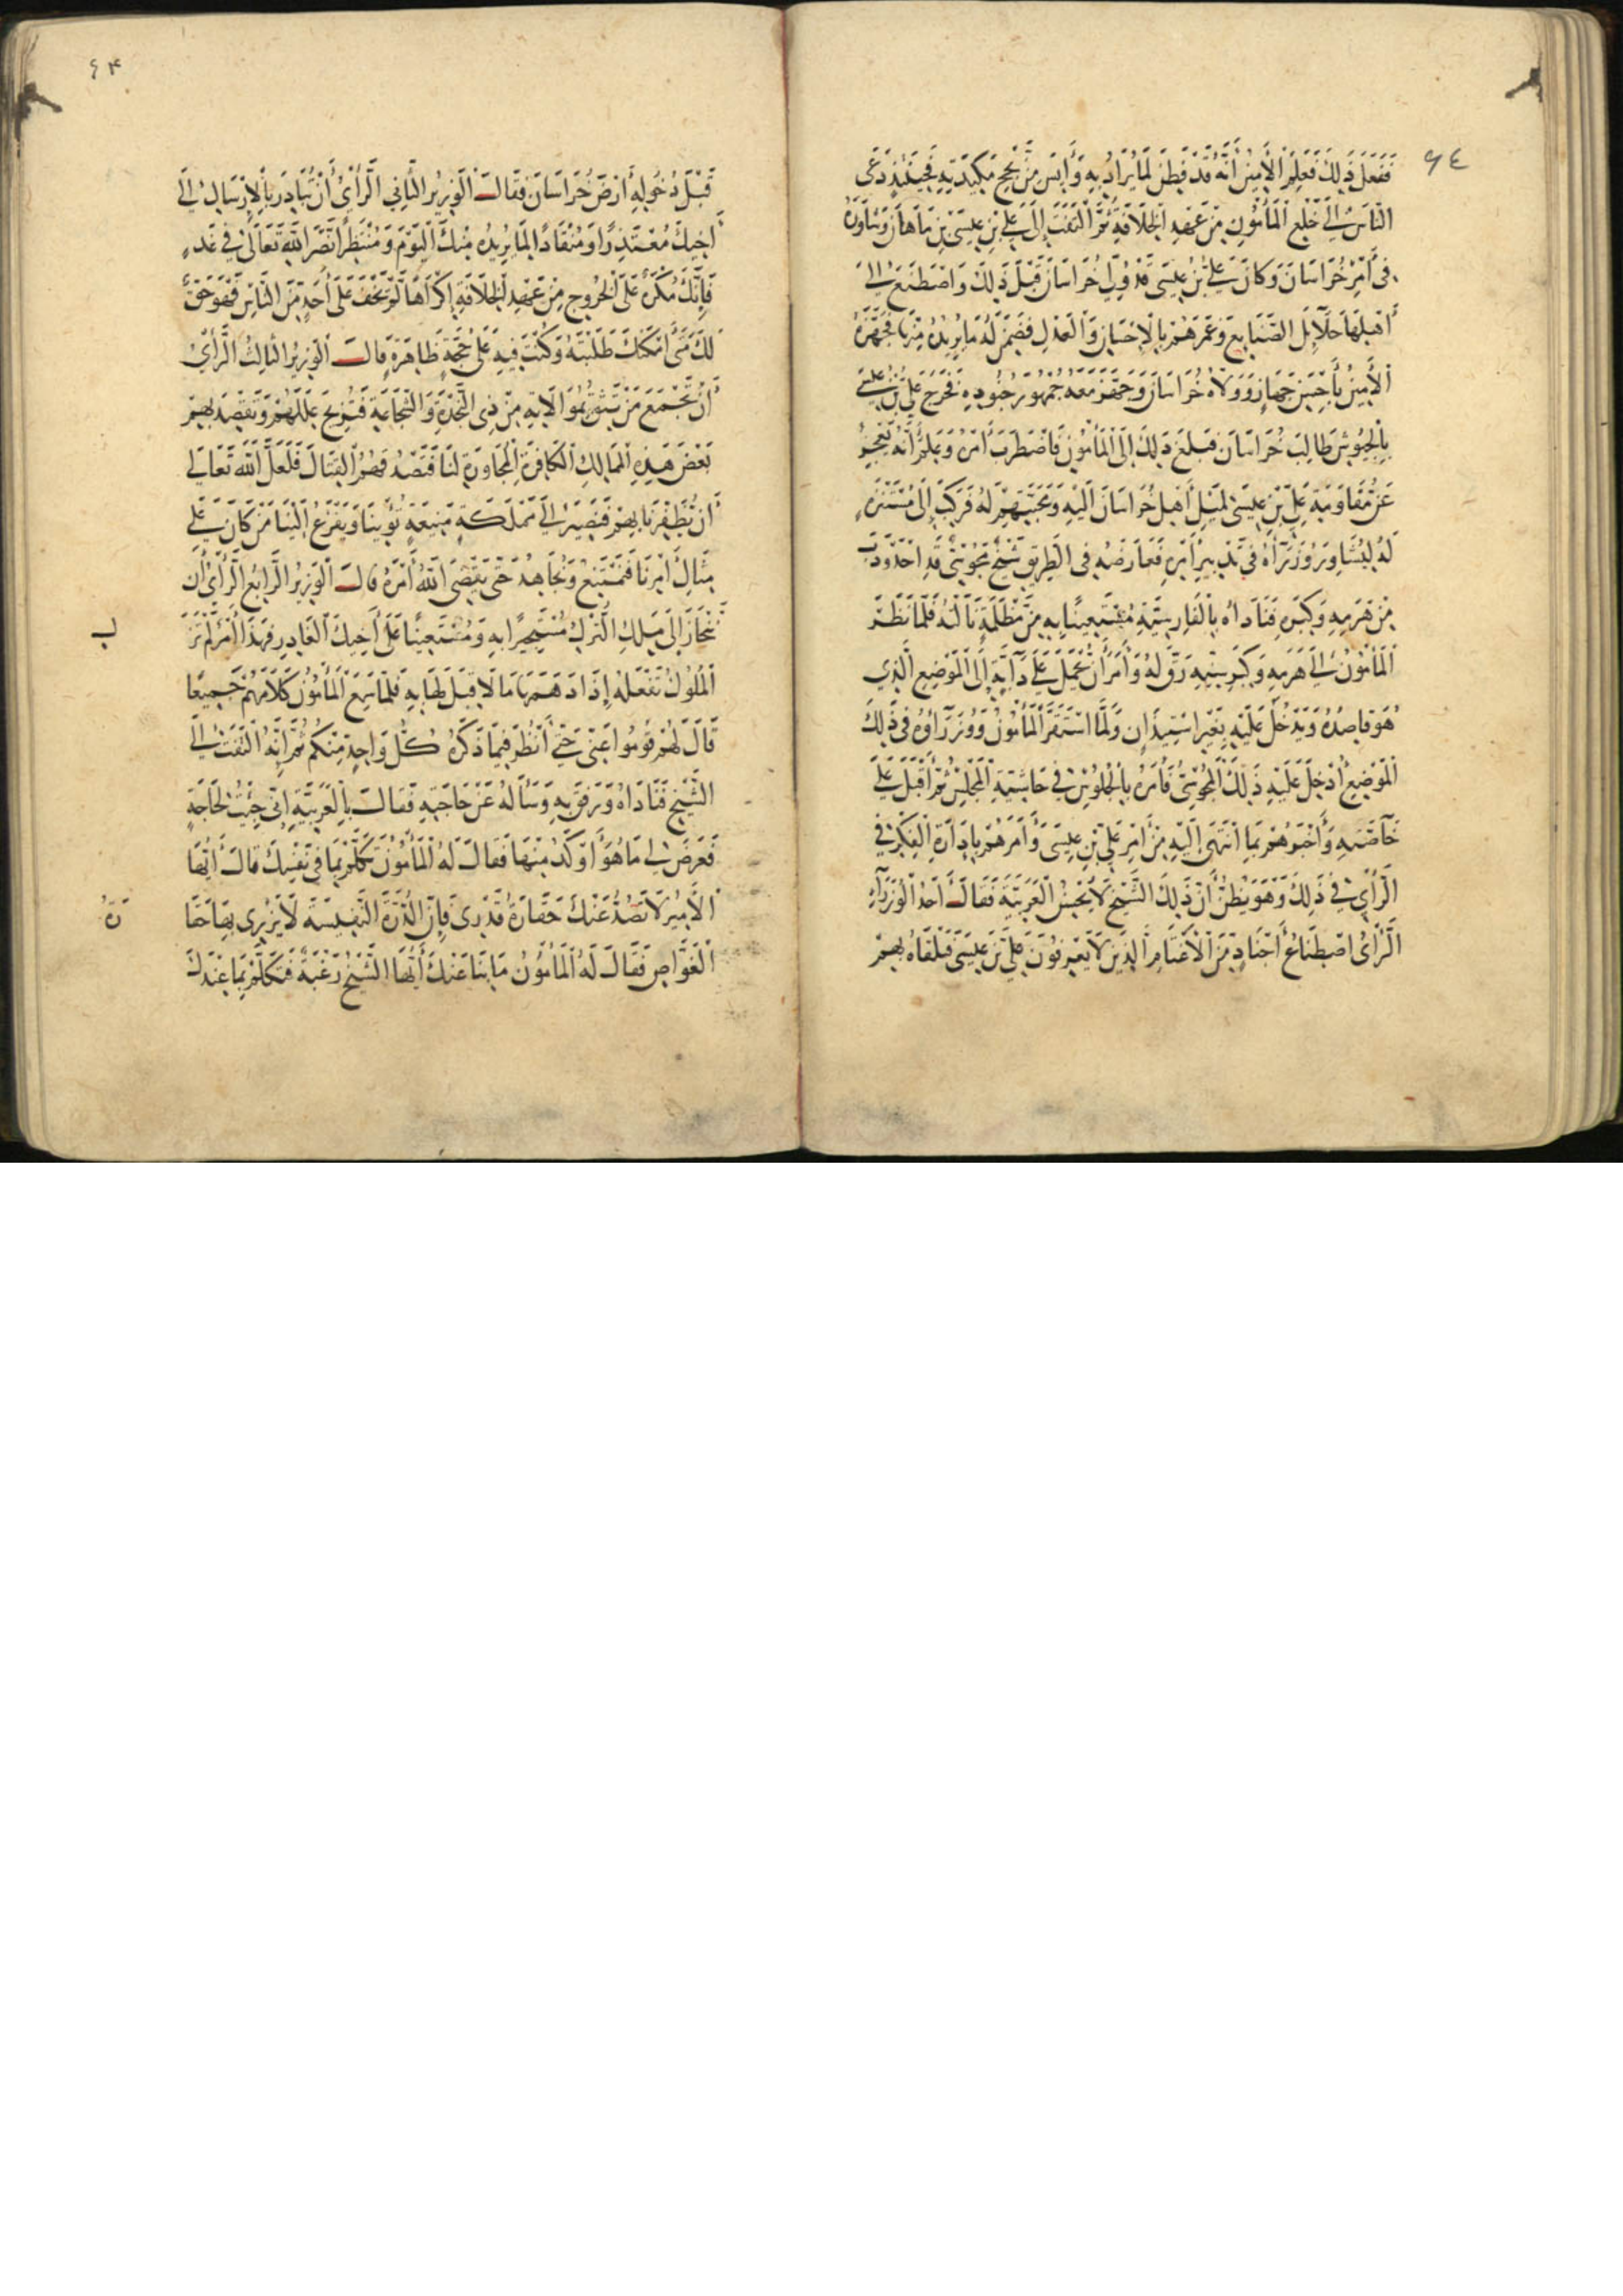 ٦٤
فَفَعَلَ ذَلِكَ فَعَلِمَ الْأَمِينُ أَنَّهُ قَدْ فَطِنَ لِمَا يُرَادُ بِهِ وَأَيِسَ مِنْ نُجْحِ مَكِيدَتِهِ فَحِينَئِذٍ دَعَى
النَّاسَ إِلَى خَلْعِ الْمَأْمُونِ مِنْ عَهْدِ الْخِلَافَةِ ثُمَّ الْتَفَتَ إِلَى عَلِيِّ بْنِ عِيسَى بْنِ مَاهَانَ وَشَاوَرَهُ
فِي أَمْرِ خُرَاسَانَ وَكَانَ عَلِيُّ بْنُ عِيسَى قَدْ وُلِّيَ خُرَاسَانَ قَبْلَ ذَلِكَ وَاصْطَنَعَ إِلَى
أَهْلِهَا جَلَائِلَ الصَّنَايِعِ وَغَمَرَهُمْ بِالْإِحْسَانِ وَالْعَدْلِ فَضَمِنَ لَهُ مَا يُرِيدُهُ مِنْهَا فَجَهَّزَهُ
الْأَمِينُ بِأَحْسَنِ جَهَازٍ وَوَلَّاهُ خُرَاسَانَ وَجَهَّزَ مَعَهُ جُمْهُورَ جُنُودِهِ فَخَرَجَ عَلِيُّ بْنُ عِيسَى
بِالْجُيُوشِ طَالِبَ خُرَاسَانَ فَبَلَغَ ذَلِكَ إِلَى الْمَأْمُونَ فَاضْطَرَبَ أَمْرُهُ وَعَلِمَ أَنَّهُ يَعْجِزُ
عَنْ مُقَاوَمَةِ عَلِيِّ بْنِ عِيسَى لِمَيْلِ أَهْلِ خُرَاسَانَ إِلَيْهِ وَمَحَبَّتِهِمْ لَهُ فَرَكِبَ إِلَى مُتَنَزَّهٍ
لَهُ لِيُشَاوِرَ وُزَرَآءَهُ فِي تَدْبِيرِ أَمْرِهِ فَعَارَضَهُ فِي الطَّرِيقِ شَيْخٌ مَجُوسِيٌّ قَدِ احْدَوْدَبَ
مِنْ هَرَمِهِ وَكِبَرِهِ فَنَادَاهُ بِالْفَارِسِيَّةِ مُسْتَعِينًا بِهِ مِنْ مَظْلَمَةٍ نَالَتْهُ فَلَمَّا نَظَرَ
الْمَأْمُونُ إِلَى هَرَمِهِ وَكِبَرِ سِنِّهِ رَقَّ لَهُ وَأَمَرَ أَنْ يُحْمَلَ عَلَى دَآبَّةٍ إِلَى الْمَوْضِعِ الَّذِي
هُوَ قَاصِدُهُ وَيَدْخُلَ عَلَيْهِ بِغَيْرِ اسْتِيذَانٍ وَلَمَّا اسْتَقَرَّ الْمَأْمُونُ وَوُزَرَآؤُهُ فِي ذَلِكَ
الْمَوْضِعِ أُدْخِلَ عَلَيْهِ ذَلِكَ الْمَجُوسِيُّ فَأَمَرَهُ بِالْجُلُوسِ فِي حَاشِيَةِ الْمَجْلِسِ ثُمَّ أَقْبَلَ عَلَى
خَآصَّتِهِ وَأَخْبَرَهُمْ بِمَا انْتَهَى إِلَيْهِ مِنْ أَمْرِ عَلِيِّ بْنِ عِيسَى وَأَمَرَهُمْ بِإِدَارَةِ الْفِكْرِ فِي
الرَّأْيِ فِي ذَلِكَ وَهُوَ يَظُنُّ أَنَّ ذَلِكَ الشَّيْخَ لَا يُحْسِنُ الْعَرَبِيَّةَ فَقَالَ أَحَدُ الْوُزَرَآءِ
الرَّأْيُ اصْطِنَاعُ أَجْنَادٍ مِنَ الْأَغْتَامِ الَّذِينَ لَا يَعْرِفُونَ عَلِيَّ بْنَ عِيسَى فَتَلْقَاهُ بِهِمْ
٦٣
قَبْلَ دُخُولِهِ أَرْضَ خُرَاسَانَ فَقَالَ الْوَزِيرُ الثَّانِي الرَّأْيُ أَنْ تُبَادِرَ بِالْإِرْسَالِ إِلَى
أَخِيكَ مُعْتَذِرًا وَمُنْقَادًا لِمَا يُرِيدُهُ مِنْكَ الْيَوْمَ وَمُنْتَظِرًا نَصْرَ اللَّهِ تَعَالَى فِي غَدٍ
فَإِنَّكَ مُكْرَهٌ عَلَى الْخُرُوجِ مِنْ عَهْدِ الْخِلَافَةِ إِكْرَاهًا لَمْ يَخْفَ عَلَى أَحَدٍ مِنَ النَّاسِ فَهُوَ حَقٌّ
لَكَ مَتَى أَمْكَنَكَ طَلَبْتَهُ وَكُنْتَ فِيهِ عَلَى حُجَّةٍ ظَاهِرَةٍ قَالَ الْوَزِيرُ الثَّالِثُ الرَّأْيُ
أَنْ تَجْمَعَ مَنْ تَثِقُ بِمُوَالَاتِهِ مِنْ ذِي النَّجْدَةِ وَالشَّجَاعَةِ فَتُزِيحَ عِلَلَهُمْ وَتَقْصِدَ بِهِمْ
بَعْضَ هَذِهِ الْمَمَالِكِ الْكَافِرَةِ الْمُجَاوِرَةِ لَنَا فَتَصْدُقَهُمُ الْقِتَالَ فَلَعَلَّ اللَّهَ تَعَالَى
أَنْ يُظْفِرَنَا بِهِمْ فَنَصِيرَ إِلَى مَمْلَكَةٍ مَنِيعَةٍ تُؤْوِينَا وَيَفْزَعُ إِلَيْنَا مَنْ كَانَ عَلَى
مِثَالِ أَمْرِنَا فَنَمْتَنِعُ وَنُجَاهِدُ حَتَّى يَقْضِيَ اللَّهُ أَمْرَهُ قَالَ الْوَزِيرُ الرَّابِعُ الرَّأْيُ أَنْ
تَنْحَازَ إِلَى مَلِكِ التُّرْكِ مُسْتَجِيرًا بِهِ وَمُسْتَعِينًا عَلَى أَخِيكَ الْغَادِرِ فَهَذَا أَمْرٌ لَمْ تَزَ
ل
الْمُلُوكُ تَفْعَلُهُ إِذَا دَهَمَهَا مَا لَا قِبَلَ لَهَا بِهِ فَلَمَّا سَمِعَ الْمَأْمُونُ كَلَامَهُمْ جَمِيعًا
قَالَ لَهُمْ قُومُوا عَنِّي حَتَّى أَنْظُرَ فِيمَا ذَكَرَهُ كُلُّ وَاحِدٍ مِنْكُمْ ثُمَّ إِنَّهُ الْتَفَتَ إِلَى
الشَّيْخِ فَنَادَاهُ وَرَفَقَ بِهِ وَسَأَلَهُ عَنْ حَاجَتِهِ فَقَالَ بِالْعَرَبِيَّةِ إِنِّي جِئْتُ لِحَاجَةٍ
فَعَرَضَ لِي مَا هُوَ أَوْكَدُ مِنْهَا فَقَالَ لَهُ الْمَأْمُونُ تَكَلَّمْ بِمَا فِي نَفْسِكَ قَالَ أَيُّهَا
الْأَمِيرُ لَا تَصُدُّ عَنْكَ حَقَارَةُ قَدْرِي فَإِنَّ الدُّرَّةَ النَّفِيسَةَ لَا يُزْرِي بِهَا حَقَا
رَةُ
الْغَوَّاصِ فَقَالَ لَهُ الْمَأْمُونُ مَا بِنَا عَنْكَ أَيُّهَا الشَّيْخُ رَغْبَةٌ فَتَكَلَّمْ بِمَا عِنْدَكَ